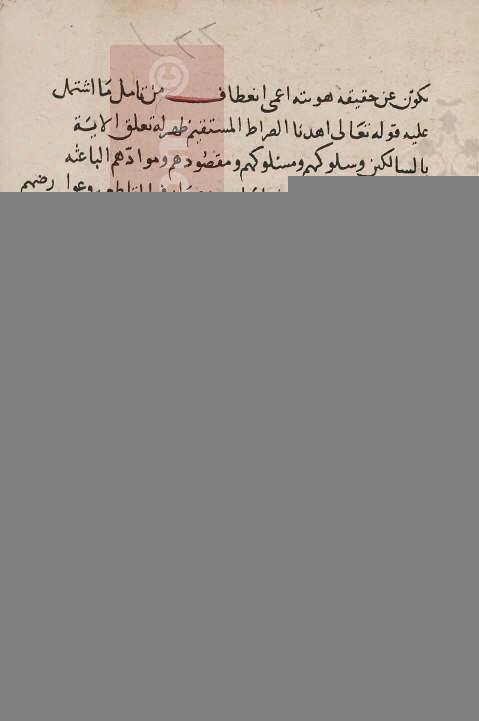 تكون عن حقيقه هويته اعمى انعطاف من تامل ما اشتمل
عليه قوله تعالى اهدنا الصراط المستقيم ظهر له تعلق الاية
بالسالكين وسلوكهم ومسلوكهم ومقصودهم وموادهم الباعثه